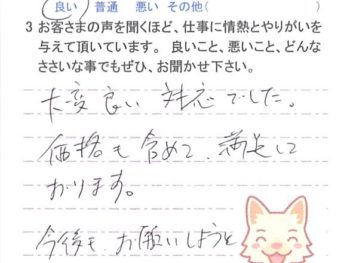 良い 普通 悪い その他(
3 お客さまの声を聞くほど、仕事に情熱とやりがいを
与えて頂いています。 良いこと、悪いこと、どんな
ささいな事でもぜひ、お聞かせ下さい。
大変良い 対応でした。
価格も含めて、満足して
おります。
今後も お願いしようと